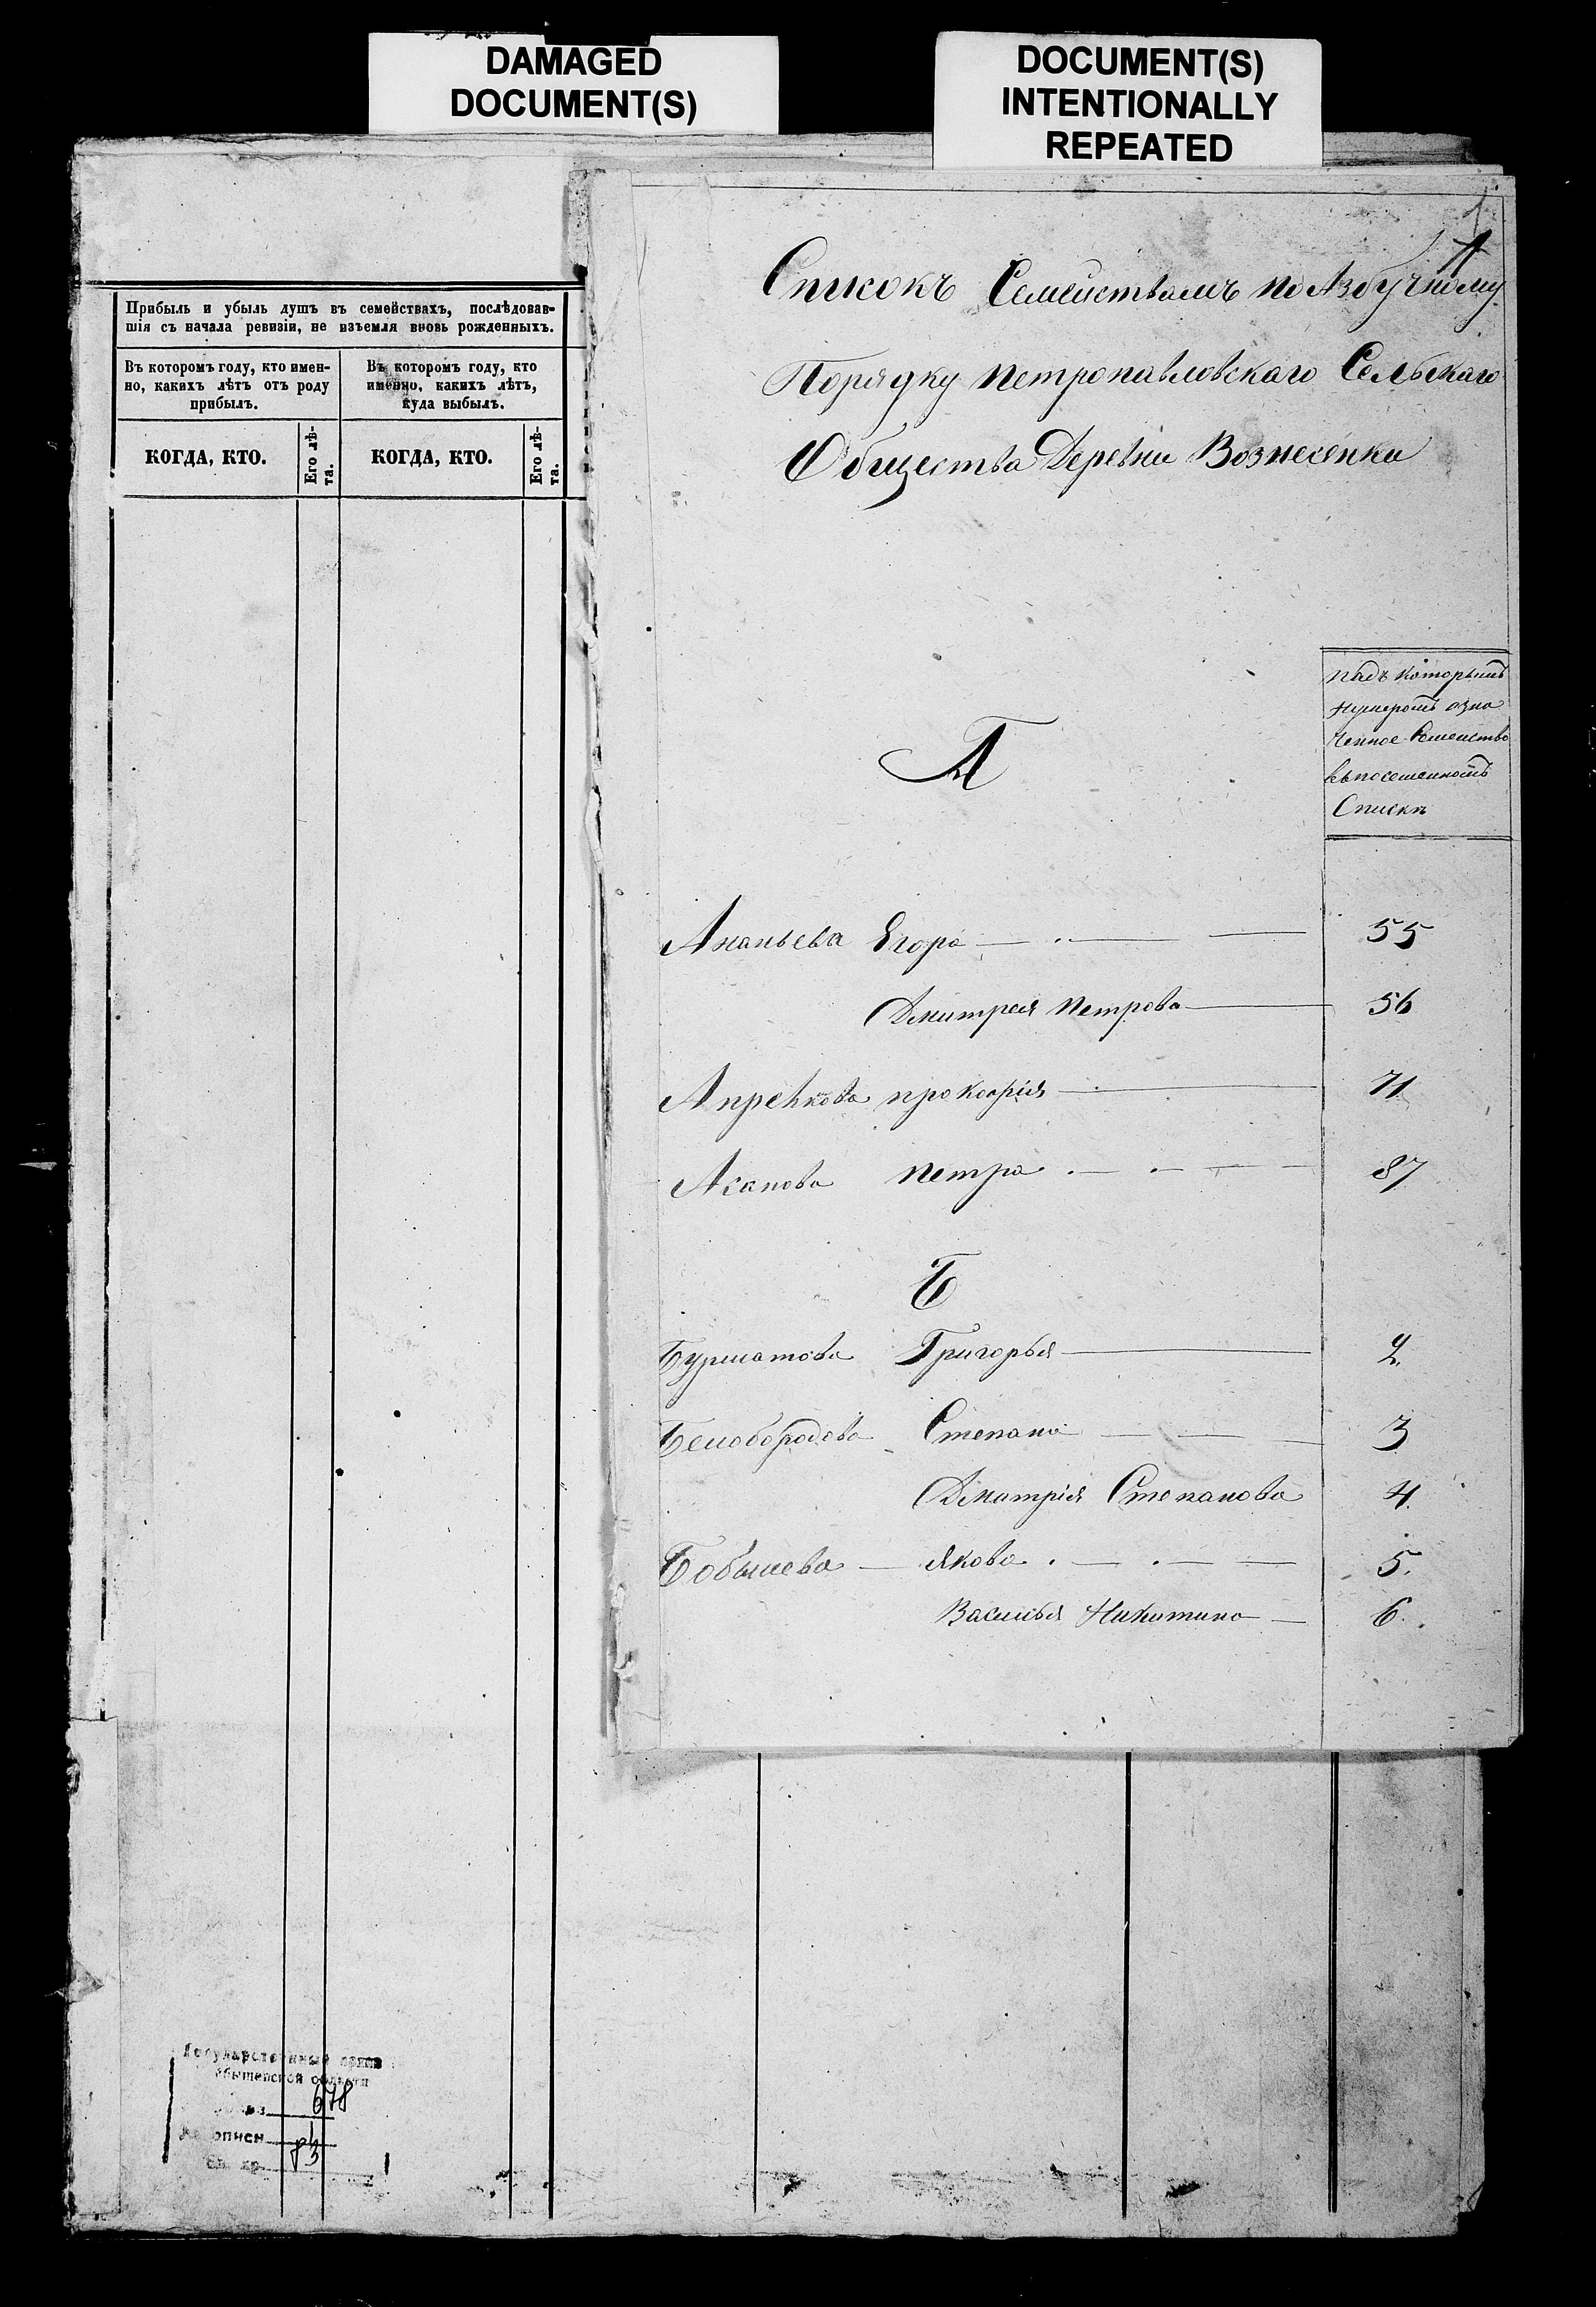 DAMAGED
DOCUMENT(S)
DOCUMENT(S)
INTENTIONALLY
REPEATED
Прибыль и убыль душъ въ семействахъ, послѣдовав-
шія съ начала ревизіи, не изъемля вновь рожденныхъ.
Въ которомъ году, кто имен-
но, какихъ лѣтъ отъ роду
прибылъ.
Въ которомъ году, кто
именно, какихъ лѣтъ,
куда выбылъ.
КОГДА, КТО.
Его лѣ-
та.
КОГДА, КТО.
Его лѣ-
та.
Списокъ Семействамъ по Азбучному
Порядку Петропавловскаго Сельскаго
Общества Деревни Вознесенки
Подъ которымъ
нумеромъ озна
ченное Семейство
въ посемейномъ
Списки
А
Ананьева Егора 55
Дмитрея Петрова 56
прокофія 71
Асанова Петра 87
Б
Бурматова Григорья 2.
Белобородова Степана 3
Дмитрія Степанова 4
Бобышева Якова 5.
Василья Никитина 6.
Государственный архив
области
678
описи 83